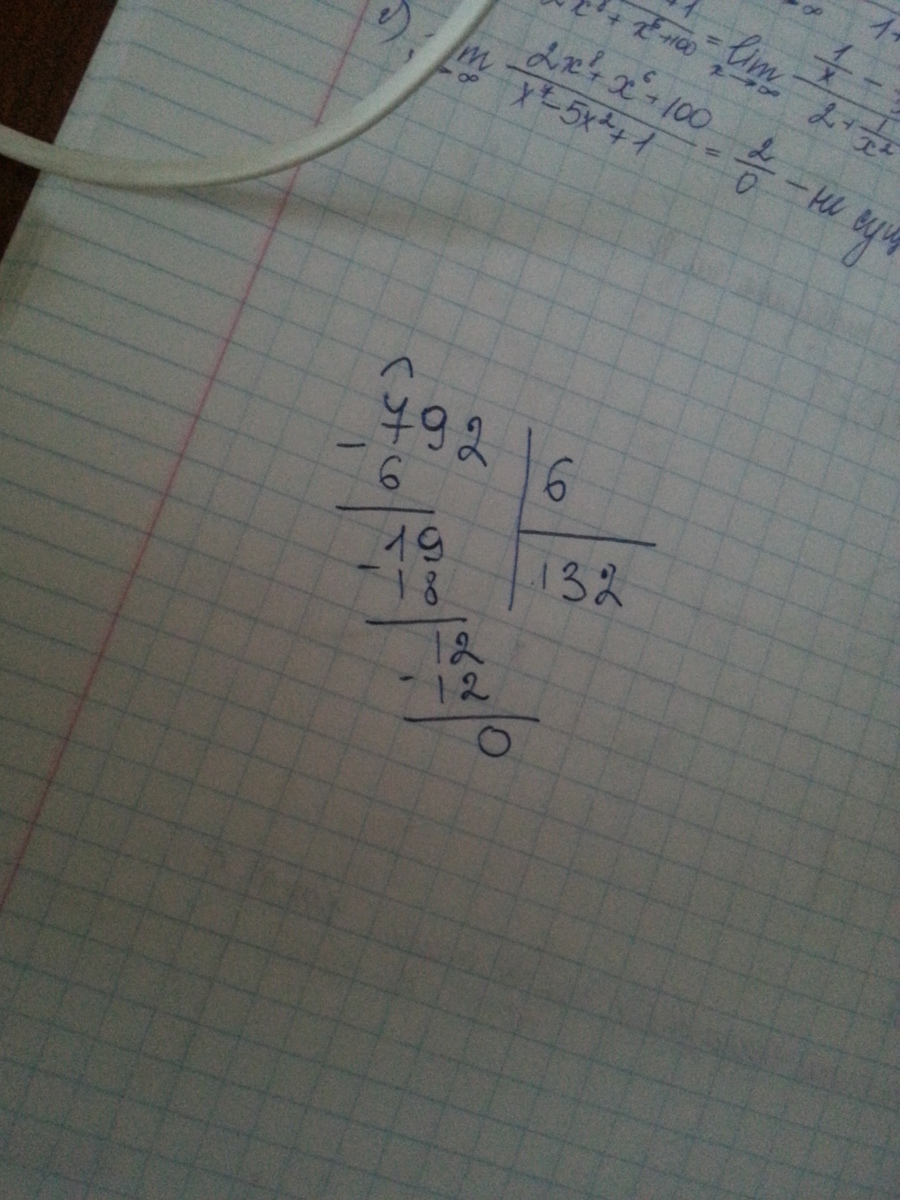 2x⁸ + x⁶ + 100 = lim x→∞ 1/x - / 2 + 1/x²
2) lim →∞ 2x⁸ + x⁶ + 100 / x⁷ - 5x² + 1 = 2/0 - не сущ
- 792 | 6
6
- 19 | 132
18
12
- 12
0